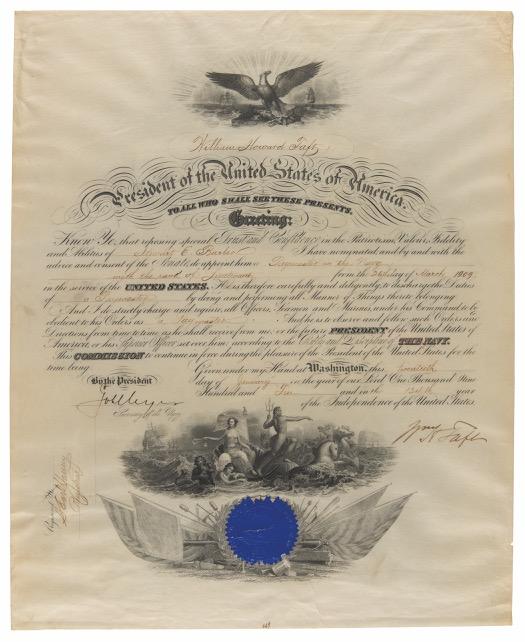 William Howard Taft,
President of the United States of America.
TO ALL WHO SHALL SEE THESE PRESENTS,
Greeting:
Know Ye, that reposing special Trust and Confidence in the Patriotism, Valor, Fidelity
and Abilities of Stewart E. Barber I have nominated, and by and with the
advice and consent of the Senate, do appoint him a Paymaster in the Navy
with the rank of Lieutenant from the day of March 1909
in the service of the UNITED STATES. He is therefore carefully and diligently to discharge the Duties
of Paymaster by doing and performing all Manner of Things thereto belonging.
And I do strictly charge and require all Officers, Seamen and Marines, under his Command to be
obedient to his Orders as a Paymaster And he is to observe and follow such Orders and
Directions from time to time as he shall receive from me, or the future PRESIDENT of the United States of
America, or his Superior Officer set over him, according to the Rules and Discipline of THE NAVY.
This COMMISSION to continue in force during the pleasure of the President of the United States for the
time being.
Given under my Hand at Washington, this twentieth
By the President
day of January in the year of our Lord One Thousand Nine
Hundred and Ten and in the 134th
of the Independence of the United States.
Secretary of the Navy.
Wm H Taft